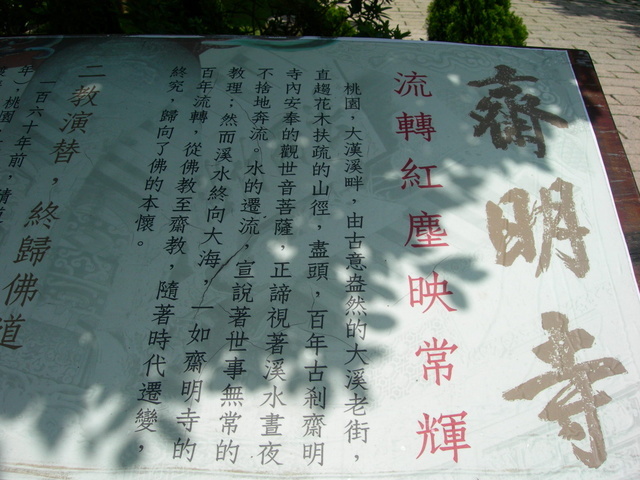 齋明寺
流轉紅塵映常輝
桃園，大漢溪畔，由古意盎然的大溪老街，
直趨花木扶疏的山徑，盡頭，百年古剎齋明
寺內安奉的觀世音菩薩，正諦視著溪水晝夜
不捨地奔流。水的遷流，宣說著世事無常的
教理：然而溪水終向大海，一如齋明寺的
百年流轉，從佛教至齋教，隨著時代遷變，
終究，歸向了佛的本懷。
二教演替，終歸佛道
一百六十年前，精
年，桃園